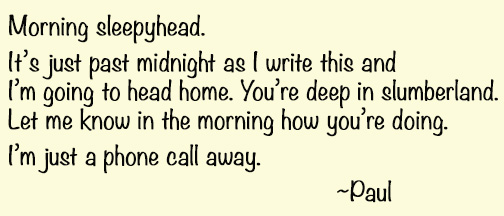 Morning sleepyhead.
It's just past midnight as I write this and
I'm going to head home. You're deep in slumberland.
Let me know in the morning how you're doing.
I'm just a phone call away.
~Paul